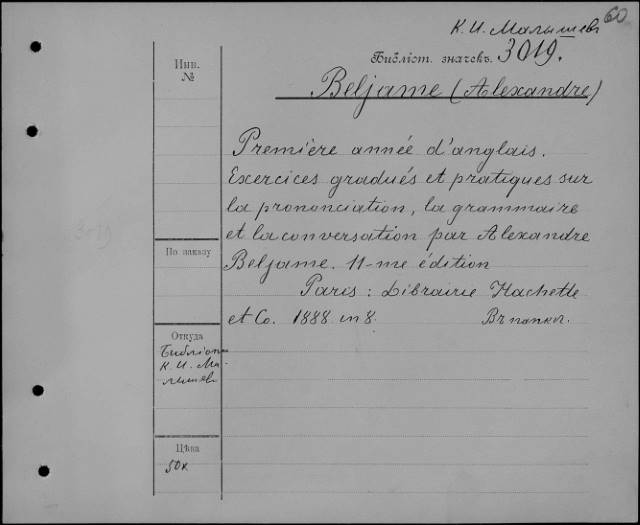 60
К. И. Малышевъ
Библіот. значекъ. 3019.
Инв.
№
Beljame (Alexandre)
Première année d'anglais.
Exercices gradués et pratiques sur
la prononciation, la grammaire
et la conversation par Alexandre
Beljame. 11-me édition
Paris: Librairie Hachette
et Co. 1888 in 8. Въ папкѣ.
3019
По заказу
Откуда
Библіот
К. И. Ма-
лышевъ
Цѣна
50к